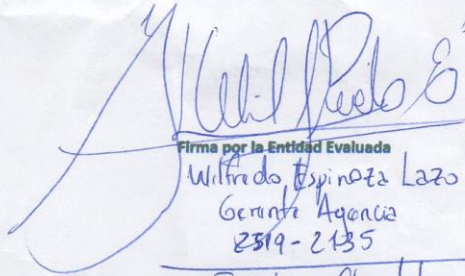 Firma por la Entidad Evaluada
Wilfredo Espinoza Lazo
Gerente Agencia
2519-2135